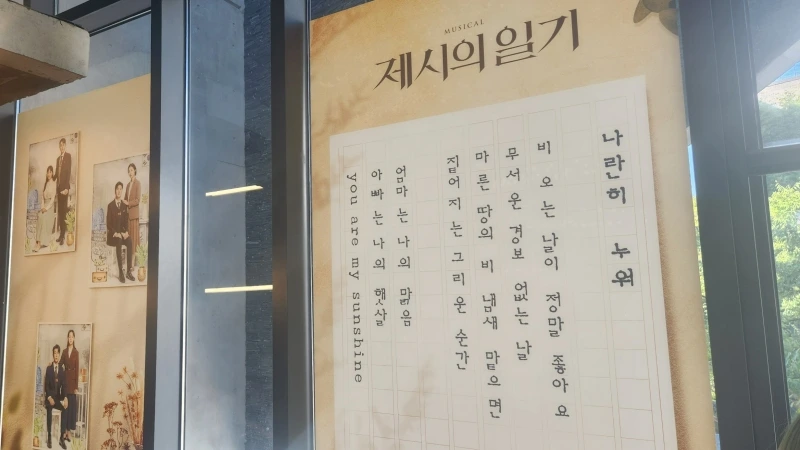 MUSICAL
제시의 일기
나란히 누워
비 오는 날이 정말 좋아요
무서운 경보 없는 날
마른 땅의 비 냄새 맡으면
짙어지는 그리운 순간
엄마는 나의 맑음
아빠는 나의 햇살
you are my sunshine